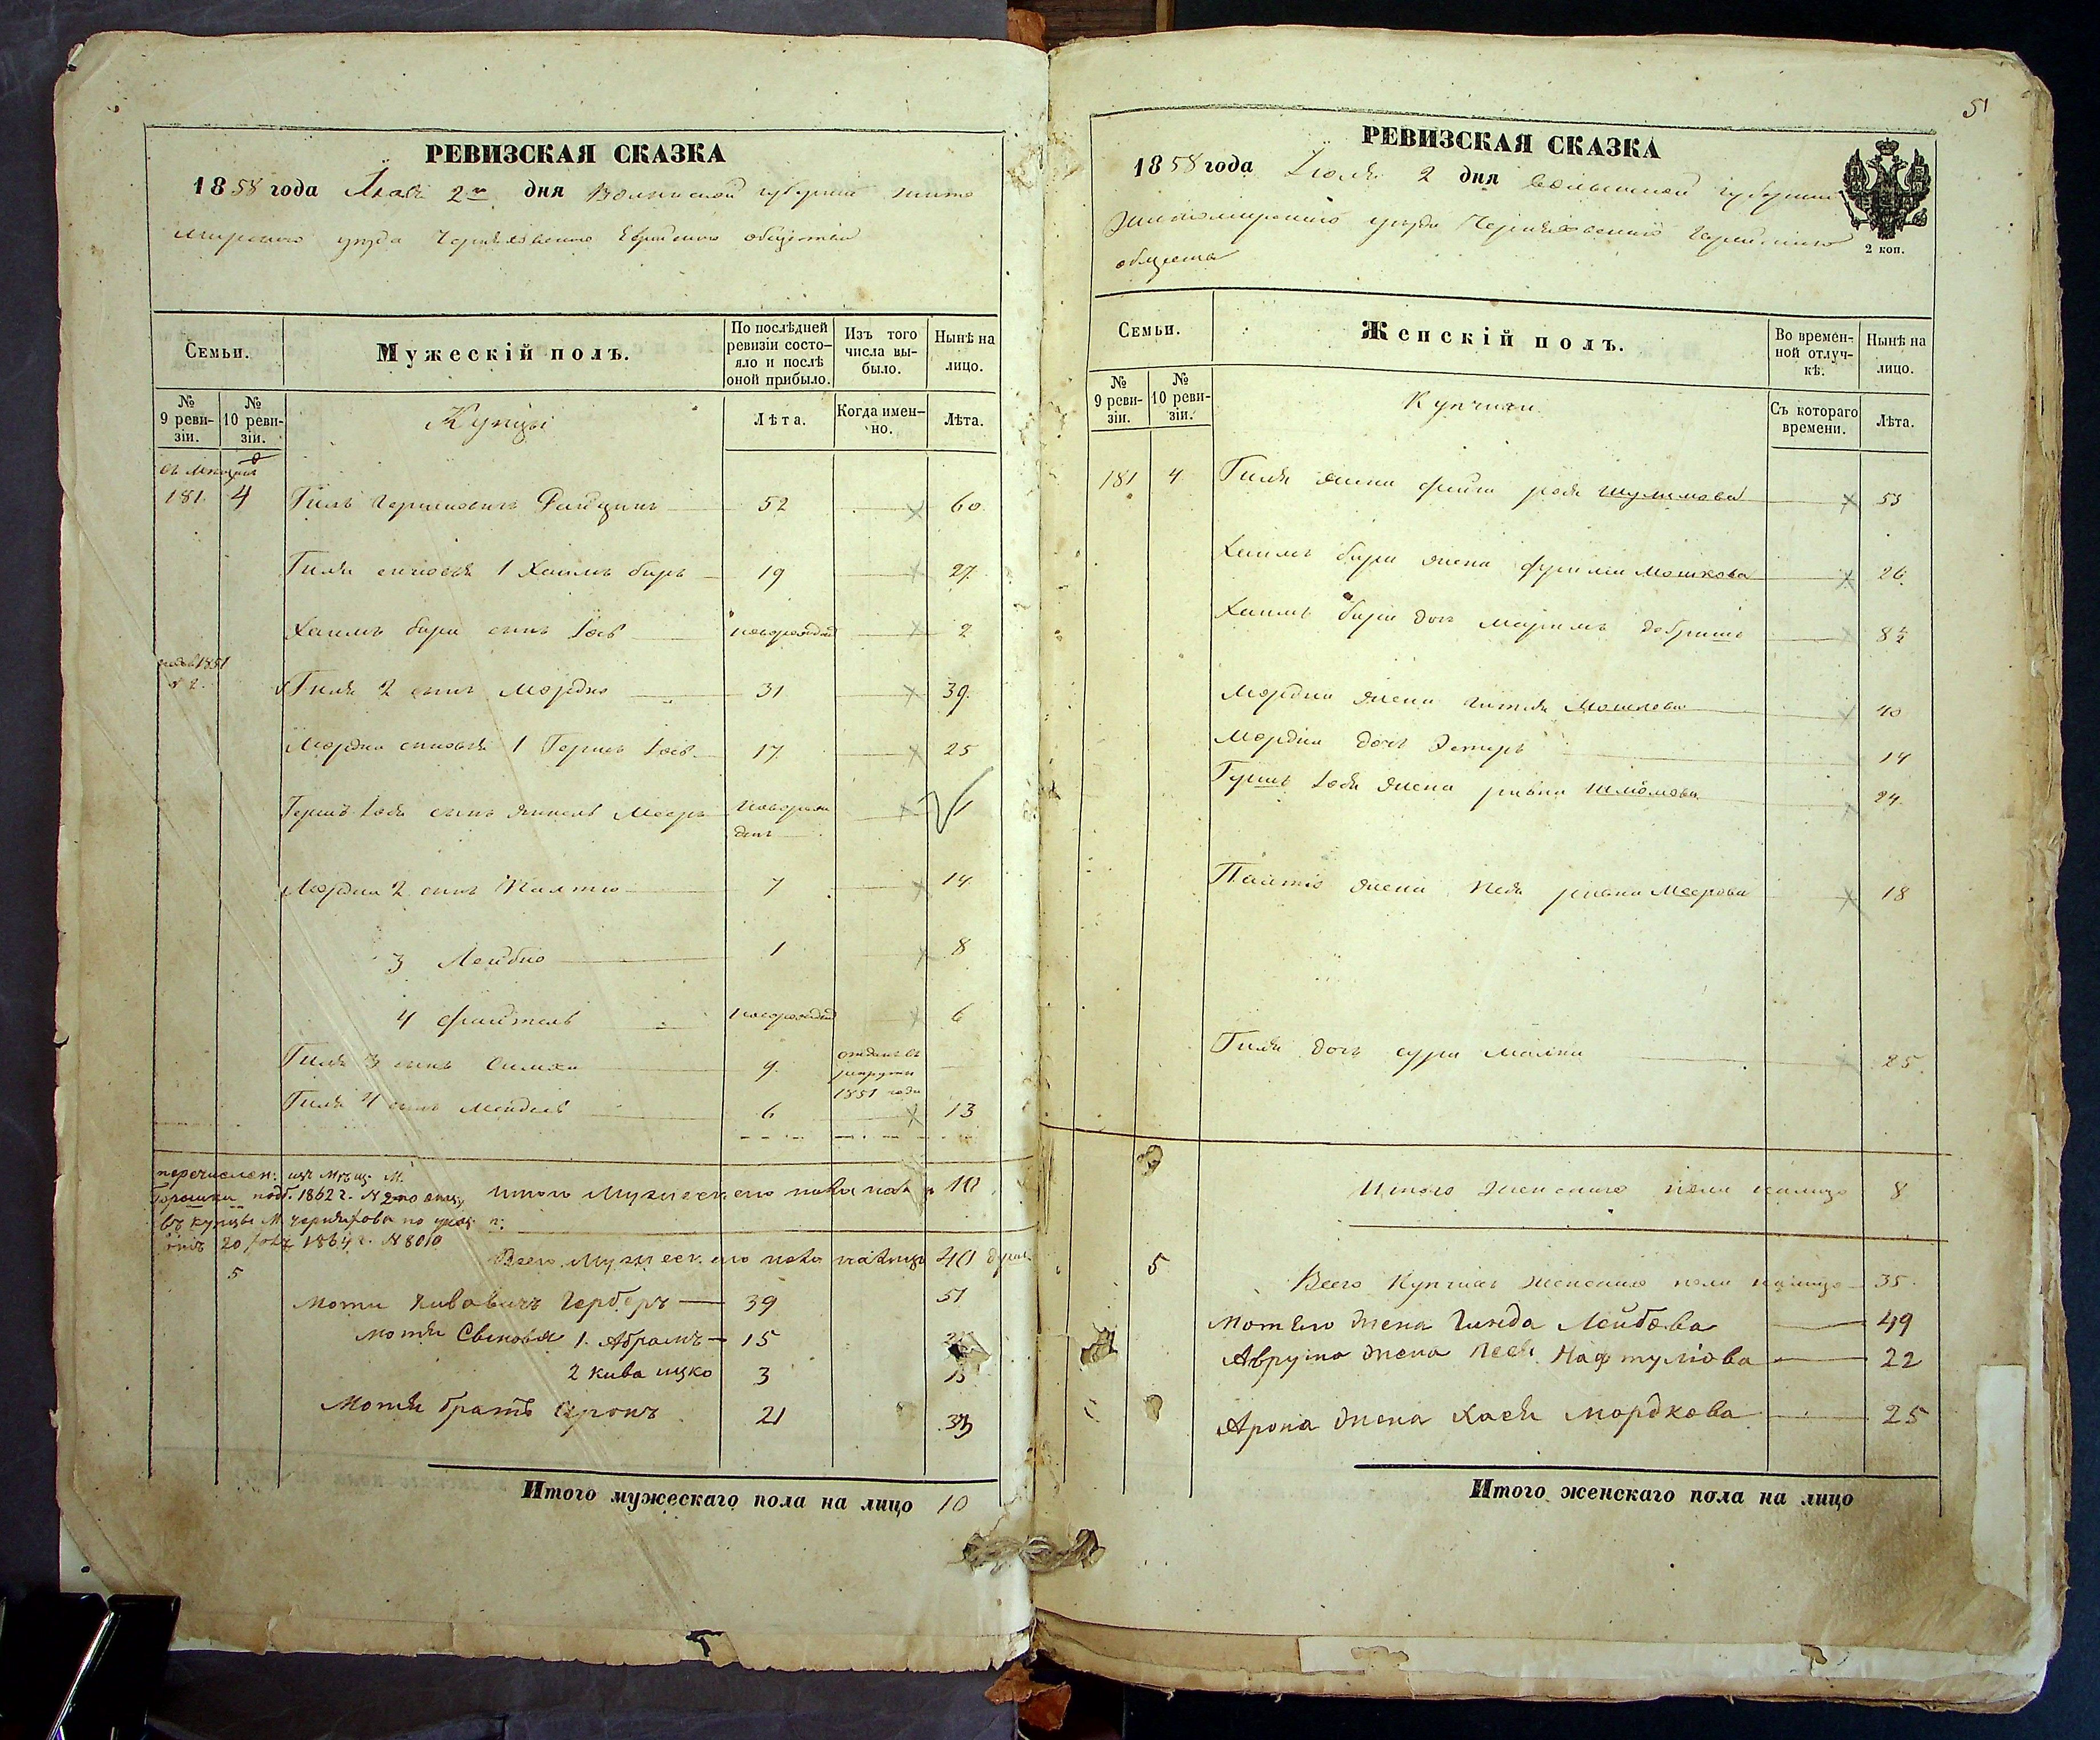 РЕВИЗСКАЯ СКАЗКА
1858 года Іюля 2го дня Волынской губерніи Жито
мирскаго уѣзда Черняховскаго Еврейскаго общества
Семьи.
Мужескій полъ.
По послѣдней ревизіи состояло и послѣ оной прибыло.
Изъ того числа выбыло.
Нынѣ на лицо.
№ 9 ревизіи.
№ 10 ревизіи.
Купцы
Лѣта.
Когда именно.
Лѣта.
181 4 Гиль Гершковичъ 52 60
Гиля сыновья 1 Хаимъ беръ 19 27
Хаимъ бера сынъ Іосъ новорожден 2
1851
№ 2. Гиля 2 сынъ Мордко 31 39
Мордка сыновья 1 Гершъ Іосъ 17 25
Гершъ Іося сынъ Янкель Мееръ новорож
денъ 1
Мордка 2 сынъ Палтіо 7 14
3 Лейбко 1 8
4 Файтель новорожден 6
Гиля 3 сынъ Симха 9 отданъ въ
рекруты
1851 года
Гиля 4 сынъ Мендель 6 13
перечислен: изъ мѣщ. М.
Горошки 1862 г. №
въ купцы М. Черняхова по указ:
20 1864 г. № 8010
Итого Мужескаго пола 10
Всего Мужескаго пола налицо 40 душъ
5
Мотя Кивовичъ Герберъ 39 51
Мотя Сыновья 1. Абрамъ 15
2 Кива ицко 3 15
Мотя братъ Аронъ 21 33
Итого мужескаго пола на лицо 10
51
РЕВИЗСКАЯ СКАЗКА
1858 года Іюля 2 дня Волынской губерніи
Житомирскаго уѣзда Черняховскаго Еврейскаго
общества
2 коп.
Семьи.
Женскій полъ.
Во временной отлучкѣ.
Нынѣ на лицо.
№ 9 ревизіи.
№ 10 ревизіи.
Купчихи
Съ котораго времени.
Лѣта.
181 4 Гиля жена Фейга рося Шулимова 53
Хаимъ бера жена Фрума Мошкова 26
Хаимъ бера дочь Маріямъ добришъ 8½
Мордка жена Гитля Мошкова 40
Мордка дочь Эстеръ 14
Гершъ Іося жена ривка Шлёмова 24
Палтіо жена Песя ривка Меерова 18
Гиля дочь сура малка 25
Итого женскаго пола налицо 8
5
Всего Купчихъ женскаго пола налицо 35
Мотьло жена Гинда Лейбова 49
Аврума жена Песя Нафтуліова 22
Арона жена Хася Мордкова 25
Итого женскаго пола на лицо